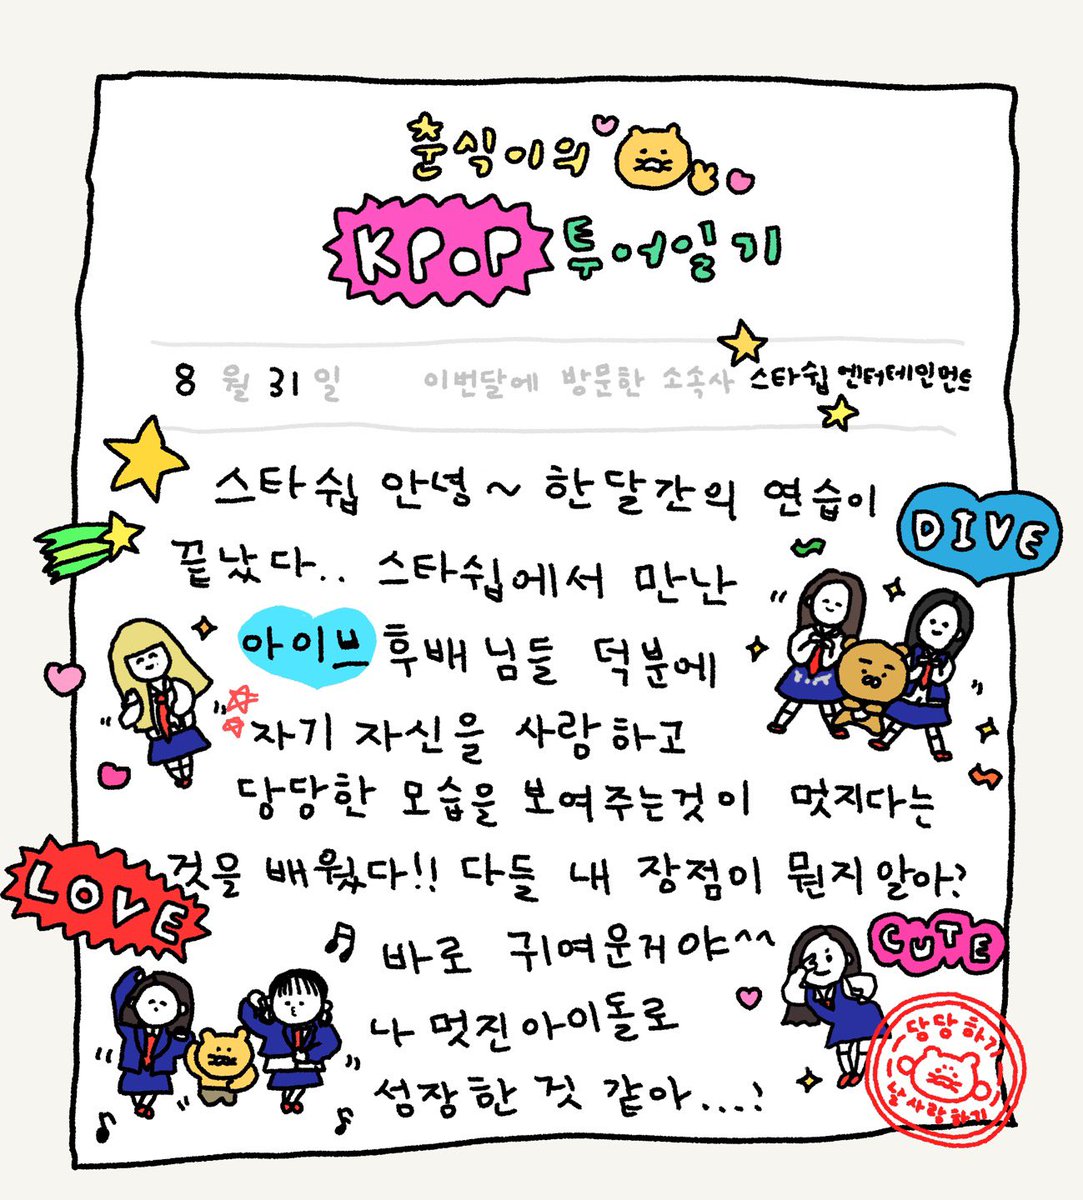 춘식이의
KPOP 투어일기
8월 31일 이번달에 방문한 소속사 스타쉽 엔터테인먼트
스타쉽 안녕~ 한달간의 연습이
DIVE
끝났다.. 스타쉽에서 만난
아이브 후배님들 덕분에
자기 자신을 사랑하고
당당한 모습을 보여주는것이 멋지다는
LOVE
것을 배웠다!! 다들 내 장점이 뭔지알아?
바로 귀여운거야^^
CUTE
나 멋진아이돌로
성장한 것 같아...?
당당하기
날사랑하기